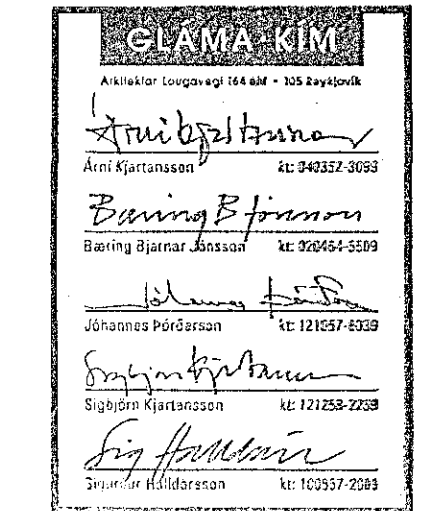 GLÁMA·KÍM
Arkitektar Laugavegi 164 ehf • 105 Reykjavík
Árni Kjartansson
Árni Kjartansson kt: 040352-3099
Bæring B Jónsson
Bæring Bjarnar Jónsson kt: 020464-5509
Jóhannes Þórðarson
Jóhannes Þórðarson kt: 121057-6039
Sigbjörn Kjartansson
Sigbjörn Kjartansson kt: 121253-2239
Sig Halldórs
Sigurður Halldórsson kt: 100557-2089